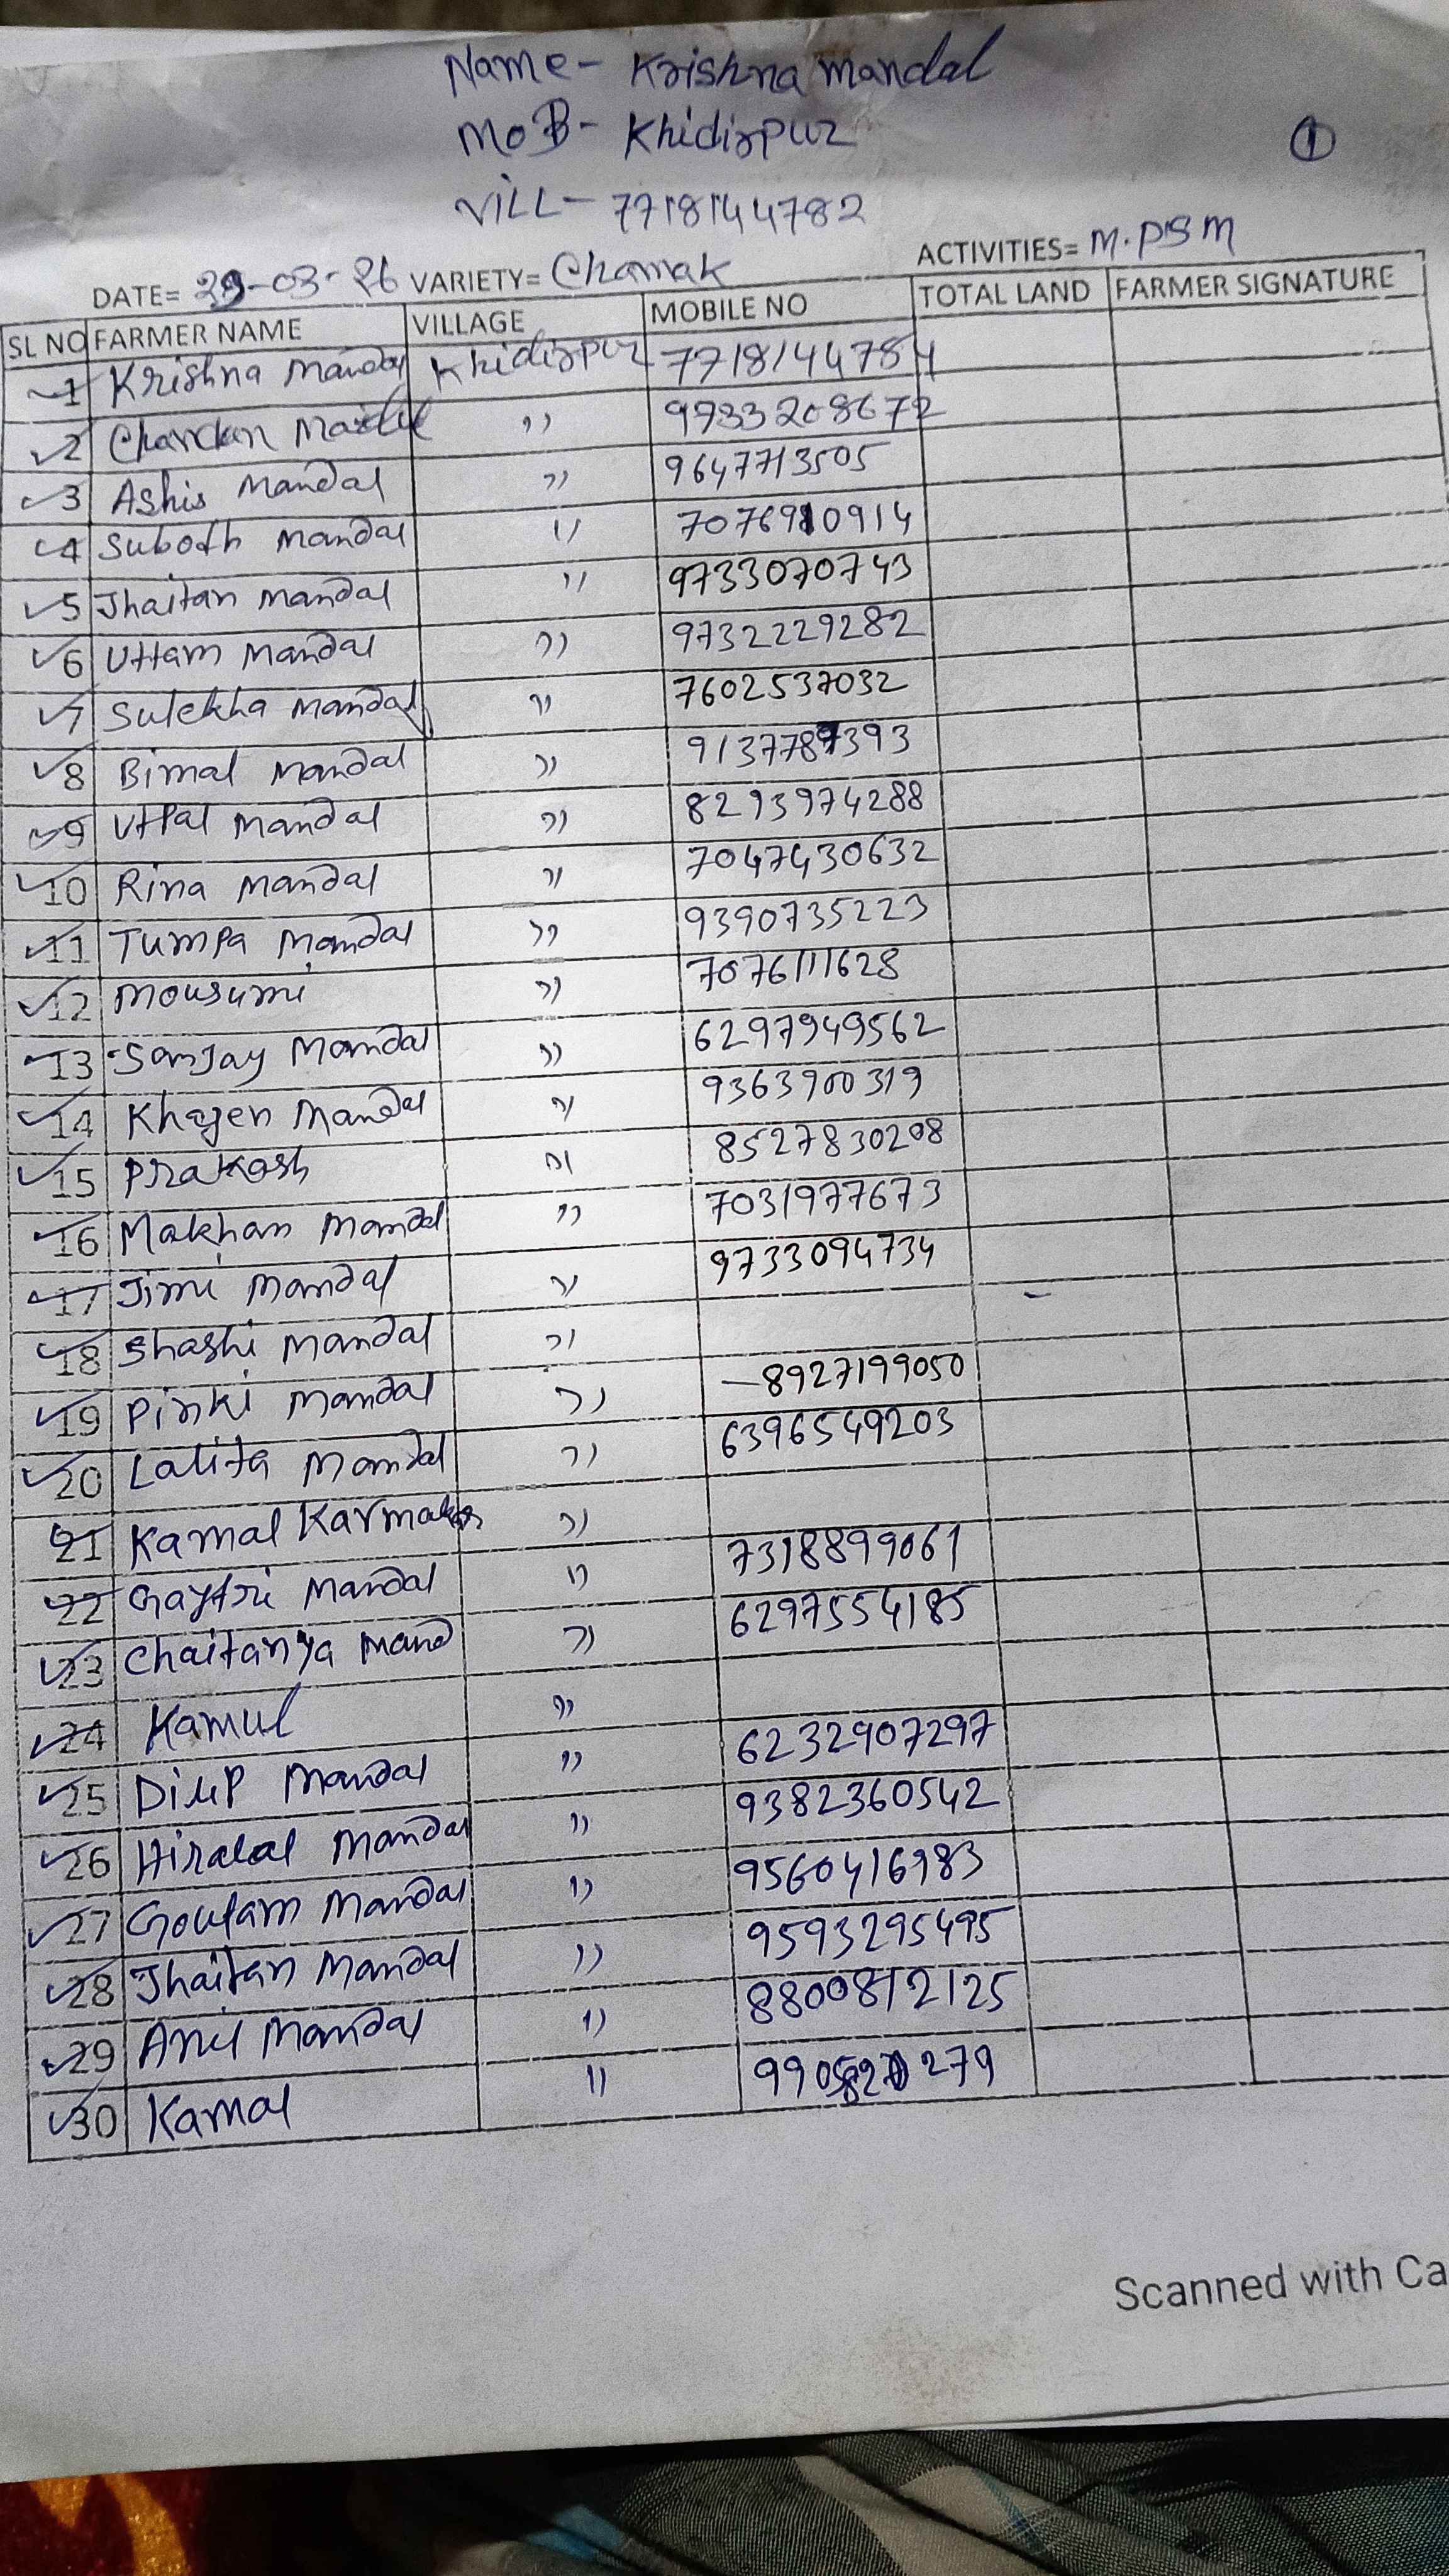 Name - Krishna Mandal
MoB - Khidirpur
①
VILL - 7718144782
ACTIVITIES= M.PSM
DATE= 29-03-26 VARIETY= Chamak
SL NO FARMER NAME VILLAGE MOBILE NO TOTAL LAND FARMER SIGNATURE
1 Krishna Mandal Khidirpur 7718144784
2 Chandan ,, 9933208672
3 Ashis Mandal ,, 9647713505
4 Subodh Mandal ,, 7076910914
5 Jhaitan Mandal ,, 9733070743
6 Uttam Mandal ,, 9732229282
7 Sulekha Mandal ,, 7602537032
8 Bimal Mandal ,, 9137787393
9 Uttpal Mandal ,, 8293974288
10 Rina Mandal ,, 7047430632
11 Tumpa Mandal ,, 9390735223
12 Mousumi ,, 7076111628
13 Sanjay Mandal ,, 6297949562
14 Khagen Mandal ,, 9363900319
15 Prakash ,, 8527830208
16 Makhan Mandal ,, 7031977673
17 Jimi Mandal ,, 9733094734
18 Shashi Mandal ,,
19 Pinki Mandal ,, -8927199050
20 Lalita Mandal ,, 6396549203
21 Kamal Karmakar ,,
22 Gaytri Mandal ,, 7318899061
23 Chaitanya Mand ,, 6297554185
24 Kamul ,,
25 Dilip Mandal ,, 6232907297
26 Hiralal Mandal ,, 9382360542
27 Goutam Mandal ,, 9560416983
28 Jhaitan Mandal ,, 9593295495
29 Anil Mandal ,, 8800812125
30 Kamal ,,
Scanned with Ca